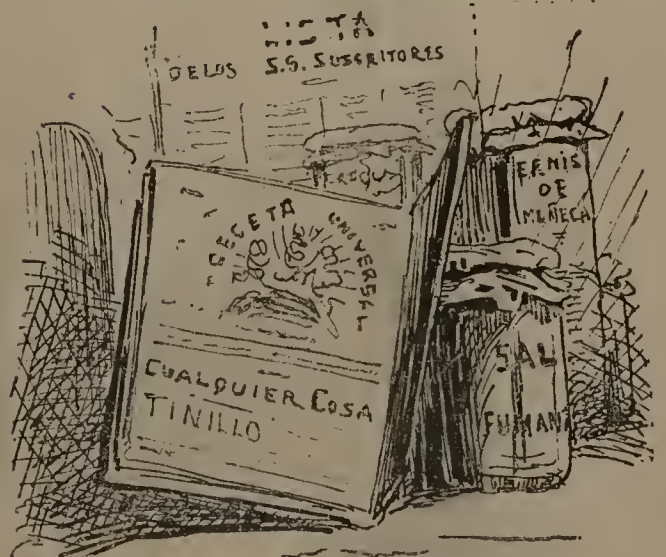 LISTA
DE LOS S.S. SUSCRITORES
RECETA UNIVERSAL
CUALQUIER COSA
TINILLO
DE
MUÑECA
SAL
FUMAN